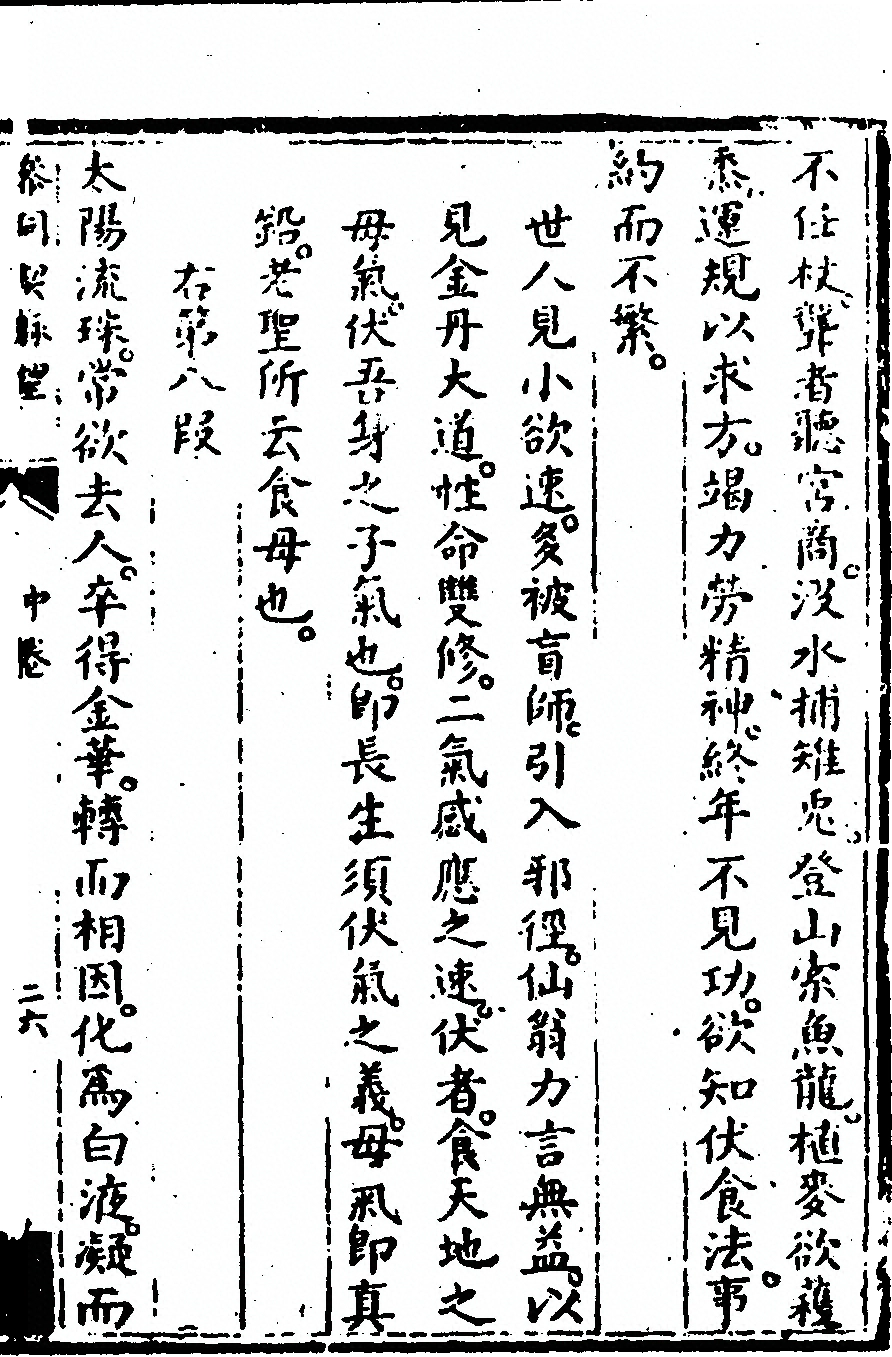 不任杖。聾者聽宮商。沒水捕雉兎。登山索魚龍。植麥欲穫
黍。運規以求方。竭力勞精神。終年不見功。欲知伏食法。事
約而不繁。
世人見小欲速。多被盲師。引入邪徑。仙翁力言無益。以
見金丹大道。性命雙修。二氣感應之速。伏者。食天地之
母氣。伏吾身之子氣也。卽長生須伏氣之義。母氣卽真
鉛。老聖所云食母也。
右第八段
太陽流珠。常欲去人。卒得金華。轉而相因。化爲白液。凝而
參同契脉望
中卷
二六